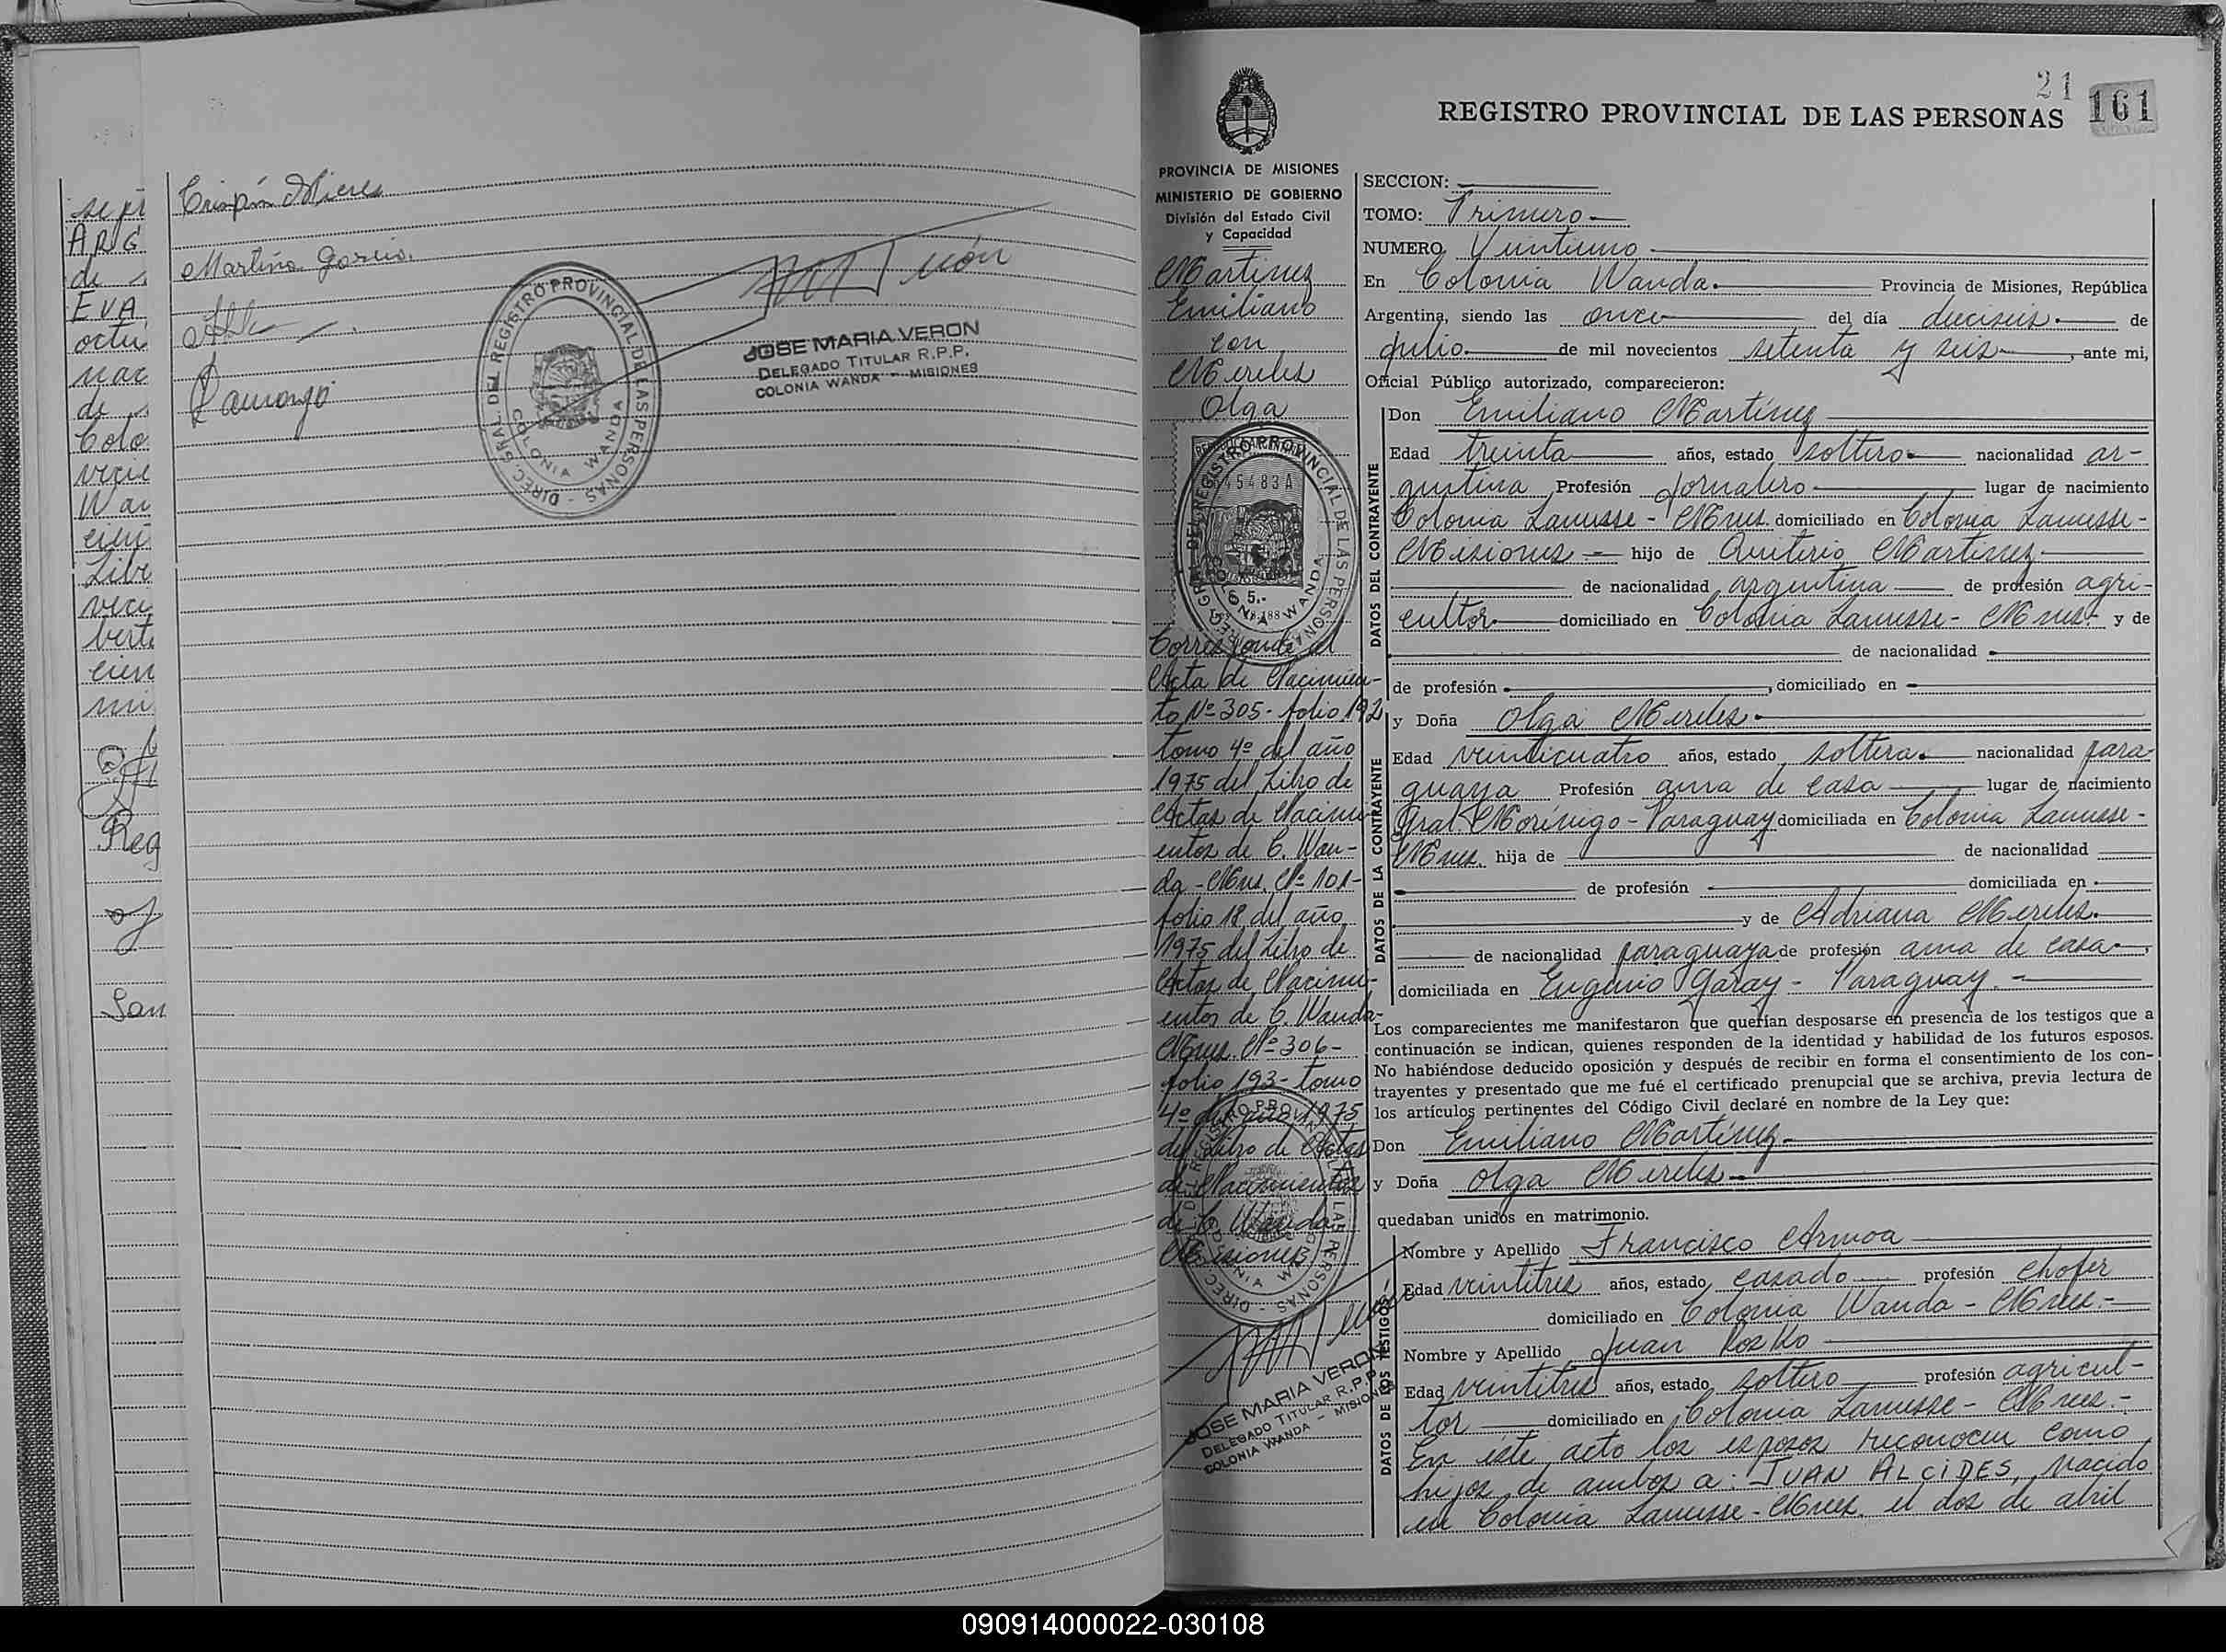 Crispín Mieres
Martina Garcia.
JOSE MARIA VERON
DELEGADO TITULAR R.P.P.
COLONIA WANDA - MISIONES
DIREC. GRAL. DEL REGISTRO PROVINCIAL DE LAS PERSONAS
COLONIA WANDA
ARG
EVA
Reg
21
161
REGISTRO PROVINCIAL DE LAS PERSONAS
PROVINCIA DE MISIONES
MINISTERIO DE GOBIERNO
División del Estado Civil
y Capacidad
Martinez
Emiliano
con
Mereles
Olga
Corresponde al
Acta de Nacimien-
to Nº 305- folio 192
tomo 4º del año
1975 del Libro de
Actas de Nacimi-
entos de C. Wan-
da - Mnes. Nº 101-
folio 18 del año
1975 del Libro de
Actas de Nacimi-
entos de C. Wanda-
Mnes. Nº 306-
folio 193- tomo
4º del año 1975
del Libro de Actas
de Nacimientos
de C. Wanda
Misiones
JOSE MARIA VERON
DELEGADO TITULAR R.P.P.
COLONIA WANDA - MISIONES
SECCION:
TOMO: Primero
NUMERO Veintiuno
En Colonia Wanda. Provincia de Misiones, República
Argentina, siendo las once del día dieciseis de
Julio de mil novecientos setenta y seis, ante mi,
Oficial Público autorizado, comparecieron:
DATOS DEL CONTRAYENTE
Don Emiliano Martínez
Edad treinta años, estado soltero nacionalidad ar-
gentina Profesión Jornalero lugar de nacimiento
Colonia Lanusse - Mnes. domiciliado en Colonia Lanusse -
Misiones - hijo de Quiterio Martinez
de nacionalidad argentina de profesión agri-
cultor domiciliado en Colonia Lanusse - Mnes. y de
de nacionalidad
de profesión , domiciliado en
DATOS DE LA CONTRAYENTE
y Doña Olga Mereles
Edad veinticuatro años, estado soltera nacionalidad para-
guaya Profesión ama de casa lugar de nacimiento
Gral. Morínigo - Paraguay domiciliada en Colonia Lanusse -
Mnes. hija de de nacionalidad
de profesión domiciliada en
y de Adriana Mereles
de nacionalidad paraguaya de profesión ama de casa,
domiciliada en Eugenio Garay - Paraguay. -
Los comparecientes me manifestaron que querían desposarse en presencia de los testigos que a
continuación se indican, quienes responden de la identidad y habilidad de los futuros esposos.
No habiéndose deducido oposición y después de recibir en forma el consentimiento de los con-
trayentes y presentado que me fué el certificado prenupcial que se archiva, previa lectura de
los artículos pertinentes del Código Civil declaré en nombre de la Ley que:
Don Emiliano Martínez
y Doña Olga Mereles
quedaban unidos en matrimonio.
DATOS DE LOS TESTIGOS
Nombre y Apellido Francisco Armoa
Edad veintitres años, estado casado profesión chofer
domiciliado en Colonia Wanda - Mnes. -
Nombre y Apellido Juan Rosko
Edad veintitres años, estado soltero profesión agricul-
tor domiciliado en Colonia Lanusse - Mnes. -
En éste acto los esposos reconocen como
hijos de ambos a: JUAN ALCIDES, nacido
en Colonia Lanusse - Mnes. el dos de abril
090914000022-030108